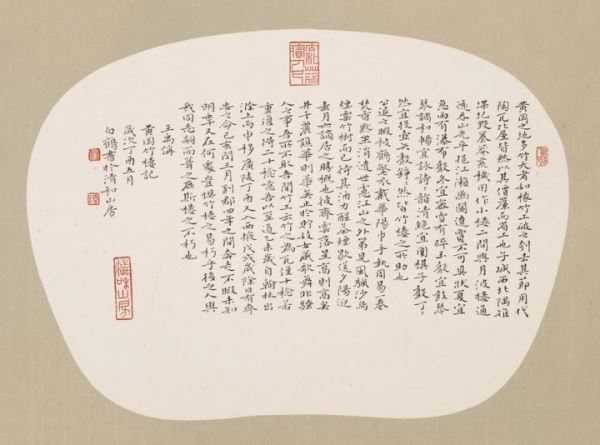 黃岡之地多竹大者如椽竹工破之刳去其節用代
陶瓦比屋皆然以其價廉而省工也子城西北隅雉
堞圮毀蓁莽荒穢因作小樓二間與月波樓通
遠吞山光平挹江瀨幽闃遼敻不可具狀夏宜
急雨有瀑布聲冬宜密雪有碎玉聲宜鼓琴
琴調和暢宜詠詩詩韻清絕宜圍棋子聲丁丁
然宜投壺矢聲錚錚然皆竹樓之所助也
公退之暇被鶴氅衣戴華陽巾手執周易一卷
焚香默坐消遣世慮江山之外第見風帆沙鳥
煙雲竹樹而已待其酒力醒茶煙歇送夕陽迎
素月亦謫居之勝概也彼齊雲落星高則高矣
井干麗譙華則華矣止於貯妓女藏歌舞非騷
人之事吾所不取吾聞竹工云竹之為瓦僅十稔若
重覆之得二十稔噫吾以至道乙未歲自翰林出
滁上丙申移廣陵丁酉又入西掖戊戌歲除日有齊
安之命己亥閏三月到郡四年之間奔走不暇未知
明年又在何處豈懼竹樓之易朽乎後之人與
我同志嗣而葺之庶斯樓之不朽也
王禹偁
黃岡竹樓記
歲次丁酉五月
白鶴書於清和山房